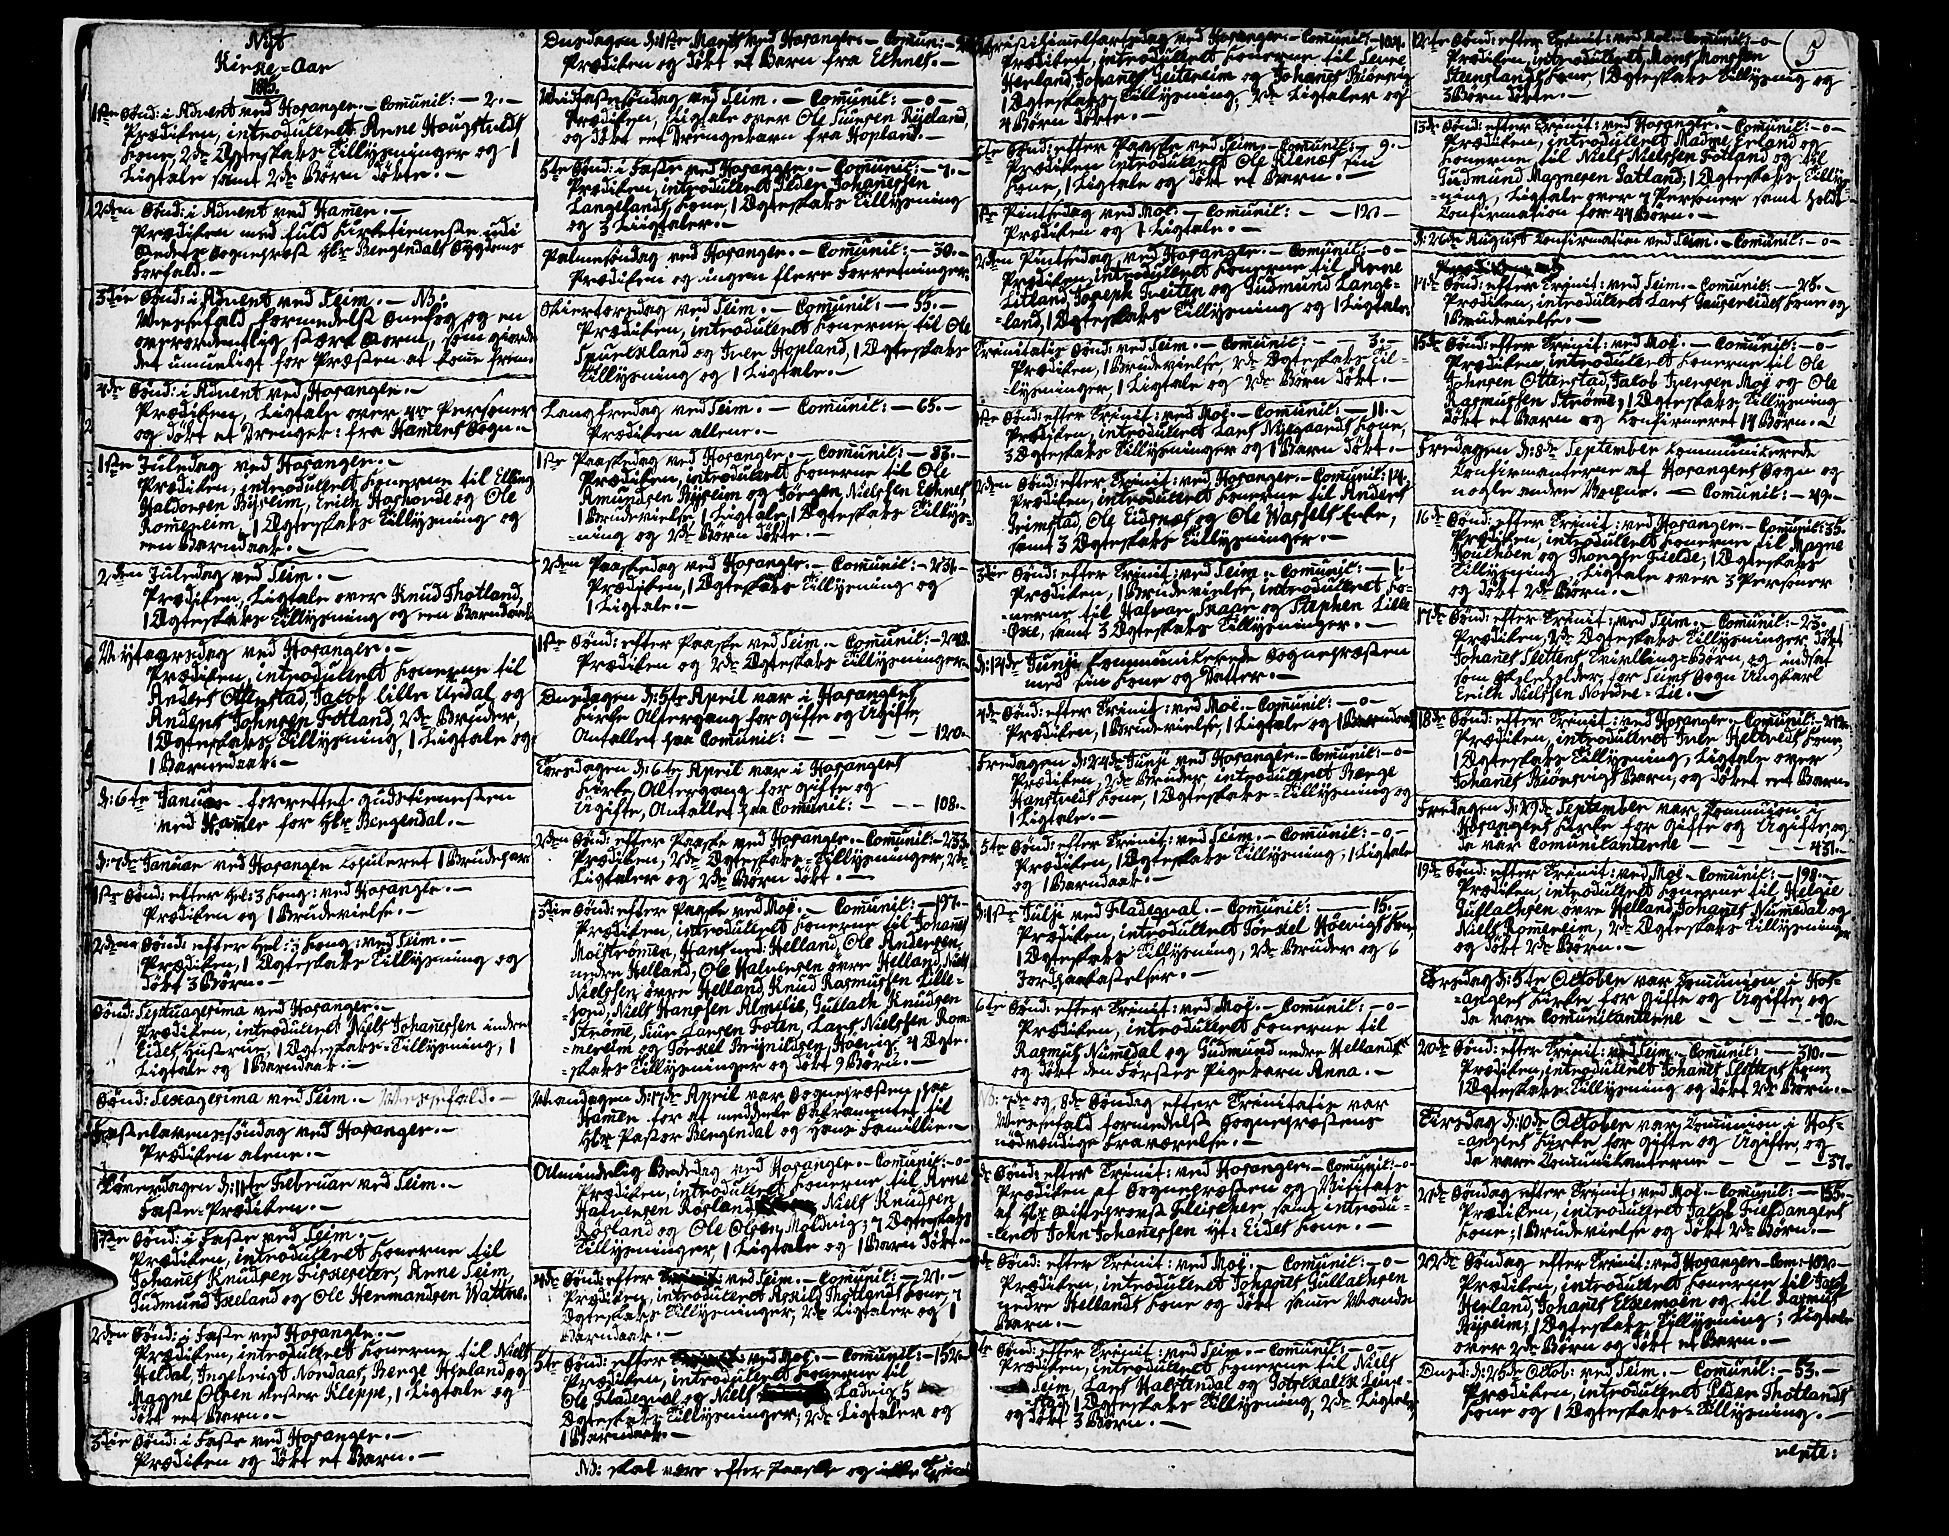 Nyt
Kirke-Aar
1815.
1ste Sønd: i Advent ved Hosanger. – Comunic: – 2. –
Prædiken, introduceret Arne Haugstvedts
Kone, 2de Ægteskabs Tillysninger og 1
Ligtale samt 2de Børn døbte. –
2den Sønd: i Advent ved Hamer. –
Prædiken med fuld Kirketieneste udi
Sognepræst Hr. Bergendals Sygdoms
Forfald. –
3die Sønd: i Advent ved Seim. – NB:
Messefald formedelst Snefog og en
overordentlig stærk Storm, som giorde
det umueligt for Præsten at komme frem.
4de Sønd: i Advent ved Hosanger. –
Prædiken, Ligtale over Personer
og døbt et Drengeb: fra Hamers Sogn. –
1ste Juledag ved Hosanger. –
Prædiken, introduceret Konerne til Elling
Haldorsen Byseim, Erich og Ole
Romereim, 1 Ægteskabs Tillysning og
een Barndaab. –
2den Juledag ved Seim. –
Prædiken, Ligtale over Knud Thotland,
1 Ægteskabs Tillysning og een Barndaab
Nytaarsdag ved Hosanger. –
Prædiken, introduceret Konerne til
Anders Otterstad, Jacob lille Urdal og
Anders Johnsen Fotland, 2de Bruder,
1 Ægteskabs Tillysning, 1 Ligtale og
1 Barnedaab. –
d: 6te Januar forrettet Gudstienesten
ved Hamer for Hr. Bergendal. –
d: 7de Januar ved Hosanger Copuleret 1 Brudepar
1ste Sønd: efter Hel: 3 Kong: ved Hosanger. –
Prædiken og 1 Brudevielse. –
2den Sønd: efter Hel: 3 Kong: ved Seim. –
Prædiken, 1 Ægteskabs Tillysning og
døbt 3 Børn. –
Sønd: Septuagesima ved Hosanger. –
Prædiken, introduceret Niels Johanessen indre
Eides Hustrue, 1 Ægteskabs-Tillysning, 1
Ligtale og 1 Barndaab. –
Sønd: Sexagesima ved Seim. – Messefald. –
Fastelavens-søndag ved Hosanger. –
Prædiken alene. –
Løverdagen d: 11te Februar ved Seim. –
Faste-Prædiken. –
1ste Sønd: i Faste ved Seim. –
Prædiken, introduceret Konerne til
Johanes Knudsen Fiskesæter, Arne Seim
Gudmund Isceland og Ole Hermandsen Wattne.
2den Sønd: i Faste ved Hosanger. –
Prædiken, introduceret Konerne til Niels
Heldal, Ingebrigt Nordaas, Berge Hixland og
Magne Olsen Kleppe, 1 Ligtale og
døbt eet Barn. –
3die Sønd: i Faste ved Hosanger. –
Prædiken og døbt et Barn. –
Onsdagen d: 1ste Marts ved Hosanger. – Comun: –
Prædiken og døbt et Barn fra Eknes. –
Midfastesøndag ved Seim. – Comunic: – 0 –
Prædiken, Ligtale over Ole Iversen Rydland,
og døbt eet Drengebarn fra Hopland. –
5te Sønd: i Faste ved Hosanger. – Comunic: – 7. –
Prædiken, introduceret Peder Johanessen
Langelands Kone, 1 Ægteskabs Tillysning
og 3 Liigtaler. –
Palmesøndag ved Hosanger. – Comunic: – 30. –
Prædiken og ingen flere Forretninger.
Skiertorsdag ved Seim. – Comunic: – 55. –
Prædiken, introduceret Konerne til Ole
og Iver Hopland, 1 Ægteskabs
Tillysning og 1 Ligtale. –
Langfredag ved Seim. – Comunic: – 65. –
Prædiken allene. –
1ste Paaskedag ved Hosanger. – Comunic: – 83. –
Prædiken, introduceret Konerne til Ole
Amundsen Byseim og Jørgen Nielssen Eknes
1 Brudevielse 1 Ligtale, 1 Ægteskabs Tillys-
=ning og 2de Børn døbte. –
2den Paaskedag ved Hosanger. – Comunic: – 231. –
Prædiken, 1 Ægteskabs Tillysning og
1 Ligtale. –
1ste Sønd: efter Paaske ved Seim. – Comunic: – 248.
Prædiken og 2de Ægteskabs Tillysninger. –
Onsdagen d: 5te April var i Hosangers
Kirke Altergang for Gifte og Ugifte,
Antallet paa Comunic: – – – – 120. –
Torsdagen d: 6te April var i Hosangers
Kirke, Altergang for Gifte og
Ugifte, Antallet paa Comunic: – – – 108. –
2den Sønd: efter Paaske ved Hosanger. – Comunic: – 233
Prædiken, 2de Ægteskabs-Tillysninger, 2de
Ligtaler og 2de Børn døbt. –
3die Sønd: efter Paaske ved Moj. – Comunic: – 197. –
Prædiken, introduceret Konerne til Johanes
Moistrømen, Hans ned: Helland, Ole Andersen,
nedre Helland, Ole Halvorsen øvre Helland, Niels
Nielssen øvre Helland, Knud Rasmussen Lille-
, Niels Hanssen Almelie, Gullach Knudsen
Strøme, Larsen Foten, Lars Nielssen Rom-
=mereim og Tørkel Brynildsen, Hosvig, 4 Ægte-
=skabs Tillysninger og døbt 9 Børn. –
Mandagen d: 17de April var Sognepræsten paa
Hamer for at meddele Sakramentet til
Hr. Pastor Bergendal og Hans Famillie. –
Almindelig Bededag ved Hosanger. – Comunic: – 0
Prædiken, introduceret Konerne til Arne
Halvorsen Røsland, Niels Knudsen
Røsland og Ole Olsen Molvig; 7 Ægteskabs
Tillysninger 1 Ligtale og 1 Barn døbt. –
4de Sønd: efter ved Seim. – Comunic: – 21. –
Prædiken, introduceret Thotlands Kone, 7
Ægteskabs Tillysninger, 2de Ligtaler og 1
Barndaab. –
5te Sønd: efter ved Moj. – Comunic: – 152. –
Prædiken, introduceret Konerne til
Ole Fladeqval, og Niels Ladvig 5
Ægteskabs Tillysninger, 2de Ligtaler og
1 Barndaab. –
NB: skal være efter Paaske og ikke
Christi Himmelfartsdag ved Hosanger. – Comunic: – 104. –
Prædiken, introduceret Konerne til
Herland, Johanes Geitereim og Johanes Biørsvig
1 Ægteskabs Tillysning, 2de Ligtaler og
4 Børn døbte. –
Sønd: efter Paaske ved Seim. – Comunic: – 9. –
Prædiken introduceret Ole
Kone, 1 Ligtale og døbt et Barn. –
1ste Pintsedag ved Moj. – Comunic: – – 12 –
Prædiken og 1 Ligtale. –
2den Pintsedag ved Hosanger. – Comunic: – 0 –
Prædiken, introduceret Konerne til Arne
Litland, Joseph Tveiten og Gudmund Lange-
=land, 1 Ægteskabs Tillysning og 1 Ligtale.
Trinitatis Sønd: ved Seim. – Comunic: – 3. –
Prædiken, 1 Brudevielse, 2de Ægteskabs Til-
=lysninger, 1 Ligtale og 2de Børn døbt. –
1ste Sønd: efter Trinit: ved Moj. – Comunic: – 11. –
Prædiken, introduceret Lars Nygaards Kone,
3 Ægteskabs Tillysninger og 1 Barn døbt. –
2den Sønd: efter Trinit: ved Hosanger. – Comunic: 14.
Prædiken, introduceret Konerne til Anders
Grimstad, Ole Eidsnæs og Ole Wassels Enke,
samt 3 Ægteskabs Tillysninger. –
3die Sønd: efter Trinit: ved Seim. – Comunic: – 1. –
Prædiken, 1 Brudevielse, introduceret Ko-
=nerne til Halvor Skaar og Stephen Lille
Oxe, samt 3 Ægteskabs Tillysninger. –
d: 14de Junii Kommunicerede Sognepræsten
med sin Kone og Datter. –
4de Sønd: efter Trinit: ved Moj. – Comunic: – 0 –
Prædiken, 1 Brudevielse, 1 Ligtale og 1 Barndaab
Fredagen d: 24de Junii ved Hosanger. – Comunic: – 0 –
Prædiken, 2de Bruder introduceret Berge
Hanstvedts Kone, 1 Ægteskabs-Tillysning og
1 Ligtale. –
5te Sønd: efter Trinit: ved Seim. – Comunic: – 0 –
Prædiken, 1 Ægteskabs Tillysning, 1 Ligtale
og 1 Barndaab. –
d: 1ste Julii ved Fladeqval. – Comunic: – 15. –
Prædiken, introduceret Tørkel Høevigs Kone,
1 Ægteskabs Tillysning, 2de Bruder og 6
Jordpaakastelser. –
6te Sønd: efter Trinit: ved Moj. – Comunic: – 0 –
Prædiken, introduceret Konerne til
Rasmus Numedal og Gudmund nedre Hellands
og døbt den Førstes Pigebarn Anna. –
NB: 7de og 8de Søndag efter Trinitatis var
Messefald formedelst Sognepræstens
nødvendige Fraværelse. –
Sønd: efter Trinit: ved Hosanger. – Comunic: – 0
Prædiken af Sognepræsten og Visitats
af Hr. Stiftsprovst Fleischer, samt introdu-
=ceret John Johanessen yt: Eides Kone. –
Sønd: efter Trinit: ved Moj. – Comunic: – 0 –
Prædiken, introduceret Johanes Gullachsen
nedre Hellands Kone og døbt samme Mands
Barn. –
Sønd: efter Trinit: ved Seim. – Comunic: – 0 –
Prædiken, introduceret Konerne til Niels
Seim, Lars Halstendal og
1 Ægteskabs Tillysning, 2de Ligtaler
og døbt 3 Børn. –
5
12te Sønd: efter Trinit: ved Moj. – Comunic: – 0 –
Prædiken, introduceret Mons Monssen
Steenslands Kone, 1 Ægteskabs Tillysning og
3 Børn døbte. –
13de Sønd: efter Trinit: ved Hosanger. – Comunic: – 0 –
Prædiken, introduceret Madme Erland og
Konerne til Niels Nielssen Fotland og til
Gudmund Magnesen Gatland; 1 Ægteskabs Tillys-
=ning, Ligtale over 7 Personer samt holdt
Confirmation for 44 Børn. –
d: 26de August Confirmation ved Seim. – Comunic: – 0 –
14de Sønd: efter Trinit: ved Seim. – Comunic: – 26. –
Prædiken, introduceret Lars Kone og
1 Brudevielse. –
15de Sønd: efter Trinit: ved Moj. – Comunic: – 0 –
Prædiken, introduceret Konerne til Ole
Johnsen Otterstad, Jacob Iversen Moj og Ole
Rasmussen Strøme; 1 Ægteskabs Tillysning
døbt et Barn og Confirmeret 17 Børn. –
Fredagen d: 8de September Communicerede
Confirmanterne af Hosangers Sogn og
nogle andre – Comunic: – 49. –
16de Sønd: efter Trinit: ved Hosanger. – Comunic: 35.
Prædiken, introduceret Konerne til Magne
og Fielde; 1 Ægteskabs
Tillysning, Ligtale over 3 Personer
og døbt 2de Børn. –
17de Sønd: efter Trinit: ved Seim. – Comunic: – 23. –
Prædiken, 2de Ægteskabs Tillysninger, døbt
Johanes Slettens Tvilling-Børn, og indsat
som Skoleholder for Seims Sogn Ungkarl
Erich Nielssen Nordre-Lie. –
18de Sønd: efter Trinit: ved Hosanger. – Comunic: –
Prædiken, introduceret Iver Heltvedts Kone,
1 Ægteskabs Tillysning, Ligtale over
Johanes Biørsvigs Barn, og døbt eet Barn. –
Fredagen d: 29de September var Communion i
Hosangers Kirke for Gifte og Ugifte, og
da var Comunicanterne – – – – 431. –
19de Sønd: efter Trinit: ved Moj. – Comunic: – 198. –
Prædiken, introduceret Konerne til Helgie
Gullachsen øvre Helland, Johanes Numedal og
Niels Romereim, 2de Ægteskabs Tillysninger
og døbt 2de Børn. –
Torsdag d: 5te October var Communion i Hos-
=angers Kirke for Gifte og Ugifte, og
da vare Comunicanterne – – – – 40. –
20de Sønd: efter Trinit: ved Seim. – Comunic: – 310. –
Prædiken, introduceret Johanes Slettens Kone
1 Ægteskabs Tillysning og døbt 2de Børn. –
Tirsdag d: 10de October var Communion i Hos-
=angers Kirke for Gifte og Ugifte, og
da vare Comunicanterne – – – – 37.
21de Søndag efter Trinit: ved Moj. – Comunic: – 155. –
Prædiken, introduceret Jacob Fieldangers
Kone; 1 Brudevielse og døbt 2de Børn. –
22de Søndag efter Trinit: ved Hosanger. – Com: – 192. –
Prædiken, introduceret Konerne til Jacob
Herland, Johanes Eldsemoen og til Rasmus
Byseim; 1 Ægteskabs Tillysning; Ligtale
over 2de Børn og døbt et Barn. –
Onsd: d: 25de Octob: ved Seim. – Comunic: – 53. –
Prædiken, introduceret Peder Thotlands
Kone og 1 Ægteskabs-Tillysning. –